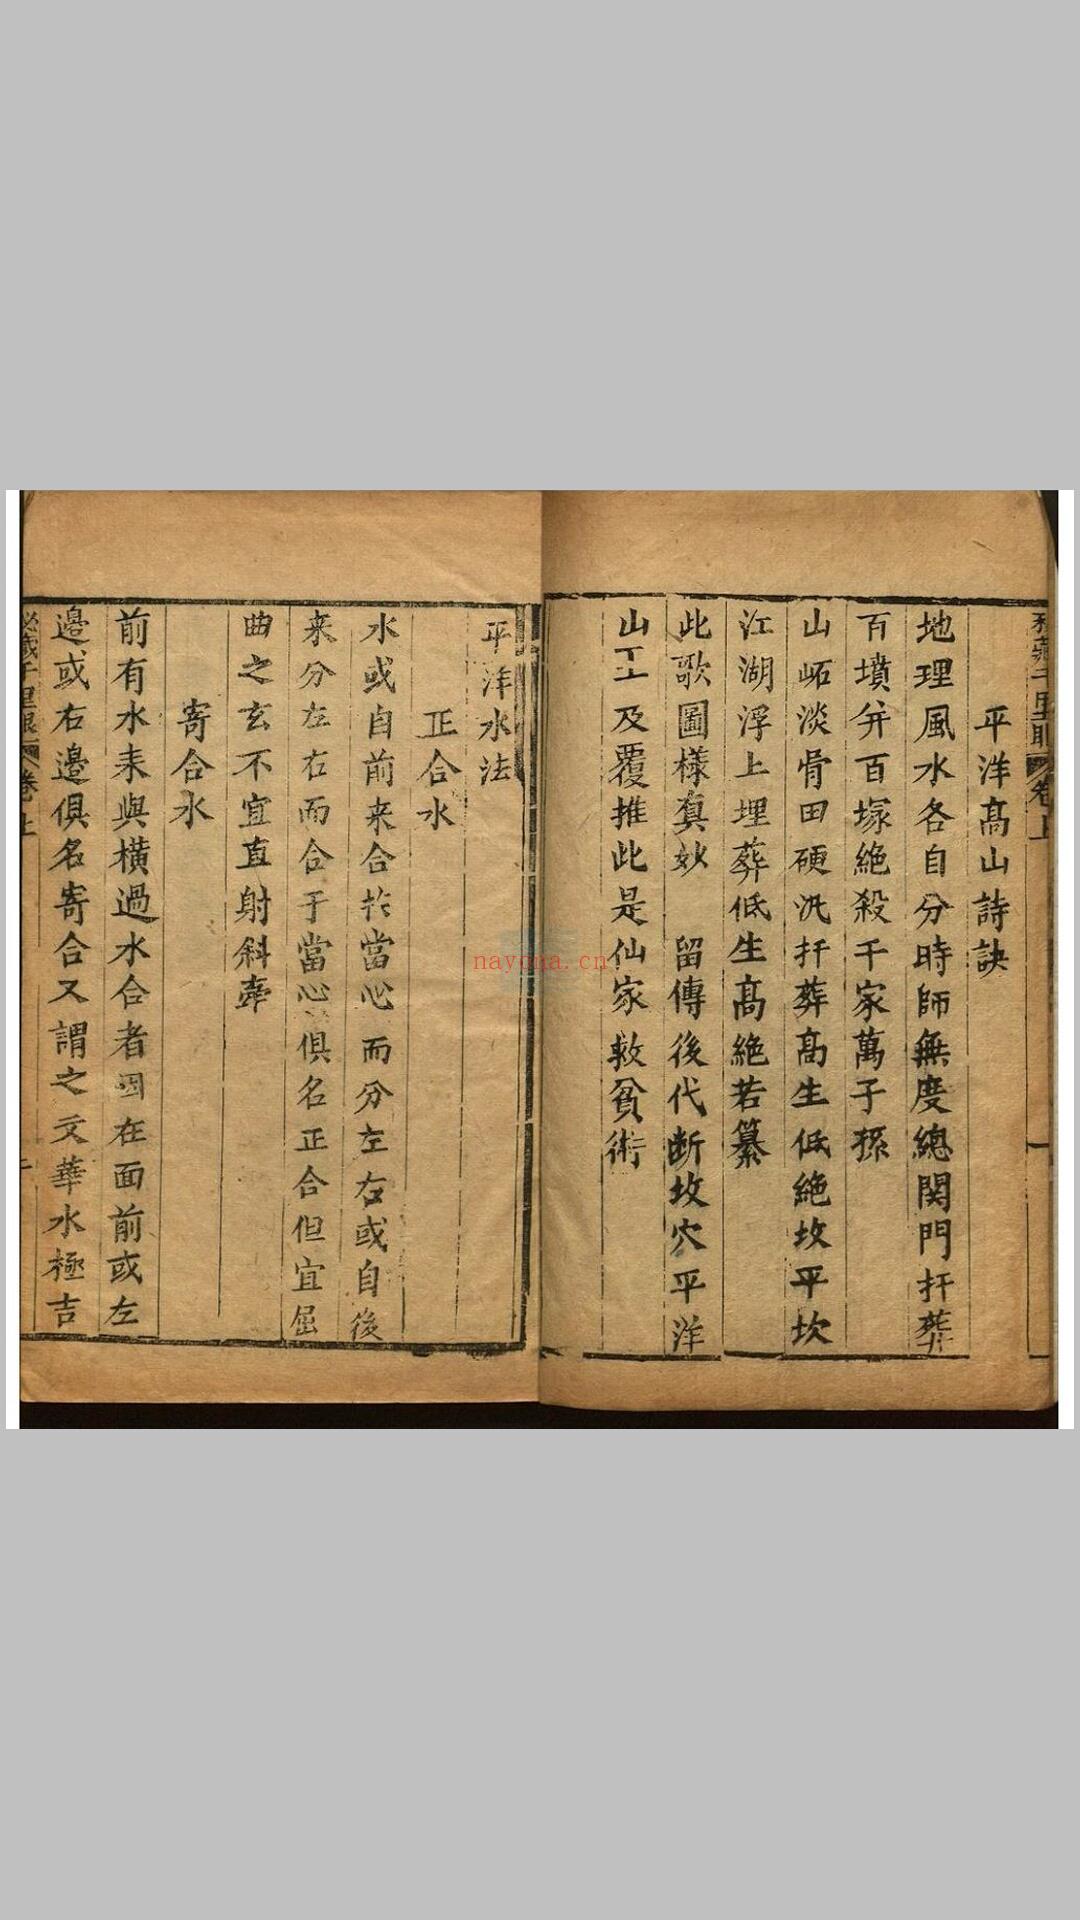 卷上
平洋髙山詩訣
地理風水各自分時師無度總関門扞葬
百墳并百塚絶殺千家萬子孫
山岵淡骨田硬汎扞葬髙生低絶坟平坎
江湖浮上埋葬低生髙絶若纂
此歌圖樣真妙 留傳後代断坟穴平洋
山工及覆推此是仙家救貧術
平洋水法
正合水
水或自前来合扵當心而分左右或自後
来分左右而合于當心俱名正合但宜屈
曲之玄不宜直射斜牽
寄合水
前有水来與橫過水合者因在面前或左
邉或右邉俱名寄合又謂之文華水極吉
秘藏千里眼 卷上
nayona.cn